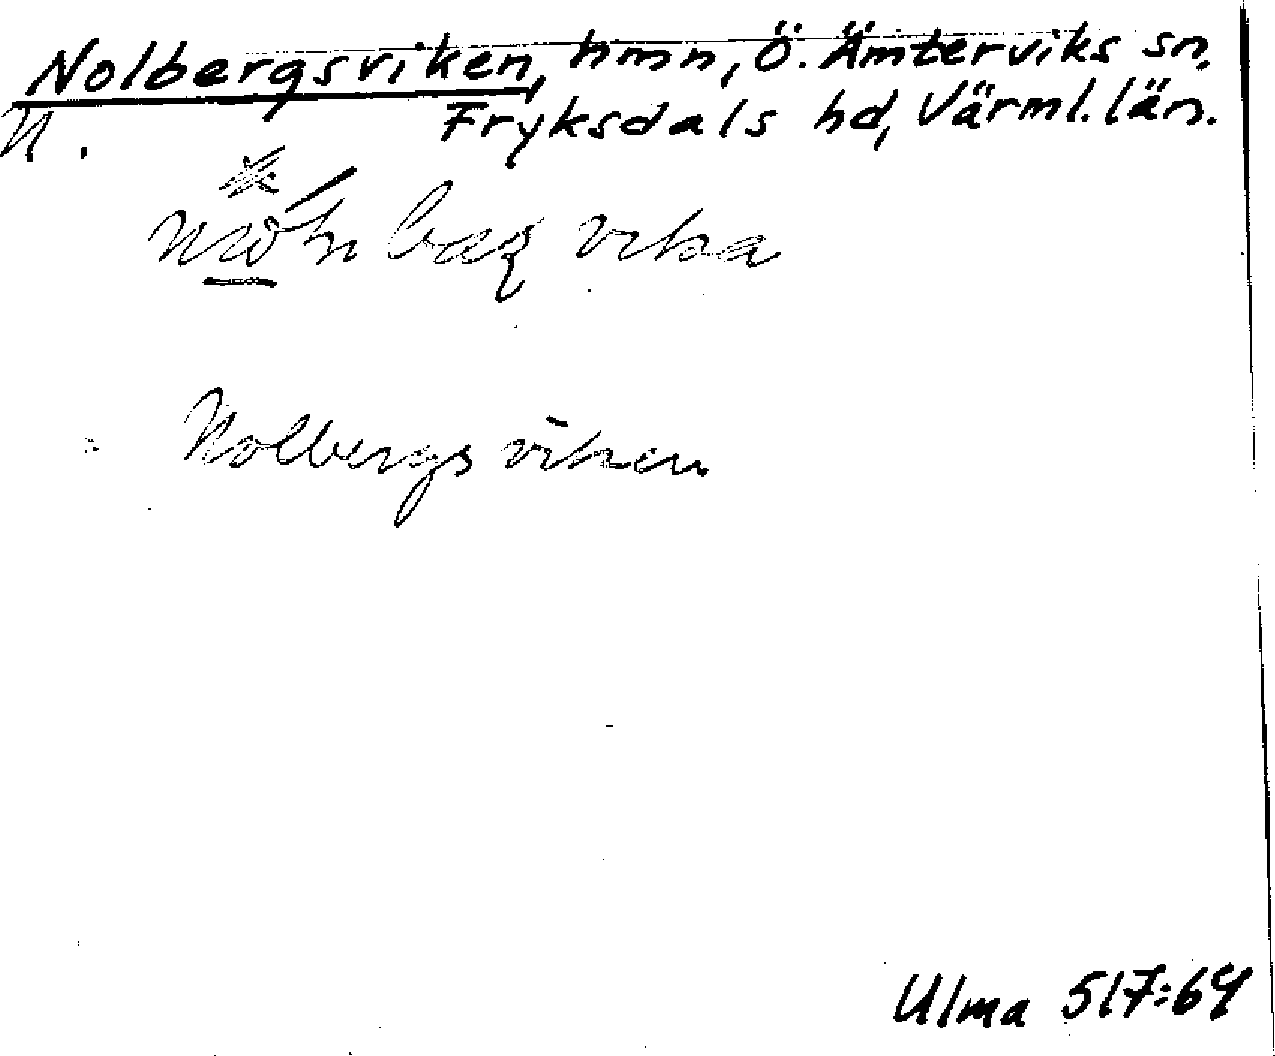 Nolbergsviken, hmn, Ö. Ämterviks sn,
Fryksdals hd, Värml. län.
N.
vika
Nolbergsviken
Ulma 517:64